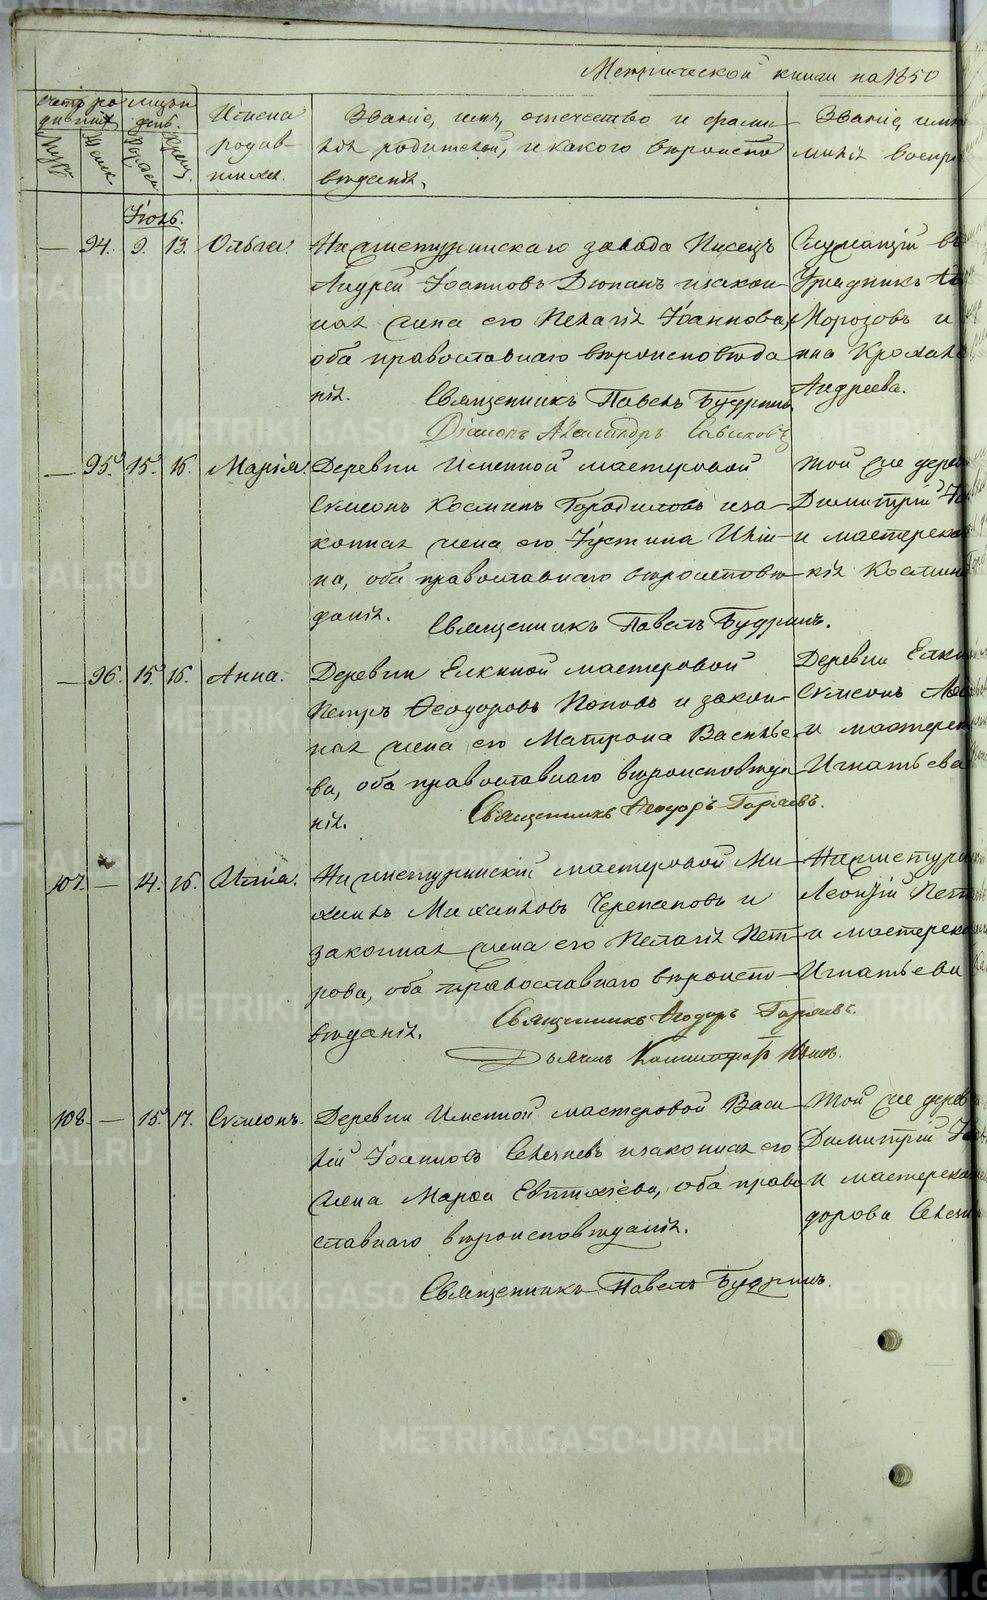 Метрической книги на 1850
Счетъ ро
дившихъ
Муж.
Женс.
месяцъ и
день.
Рожден.
Крещ.
Имена
родив-
шихся.
Званіе, имя, отечество и фами-
лія родителей, и какого вѣроиспо
вѣданія.
Званіе, имя
милія воспр
Іюль.
— 94. 9. 13. Ольга.
Нижнетуринскаго завода Писецъ
Андрей Іоанновъ Дюпанъ и закон-
ная жена его Пелагія Іоаннова,
оба православнаго вѣроисповѣда
нія.
Священникъ Павелъ Будринъ
Діаконъ Александръ Савиновъ
Служащій въ
Урядникъ
Морозовъ и
Андреева.
— 95. 15. 16. Марія.
Деревни Именной мастеровой
Симеонъ Косминъ Городиловъ и за-
конная жена его Іустина Иліи-
на, оба православнаго вѣроисповѣ-
данія.
Священникъ Павелъ Будринъ.
той же дерев
Димитрій
и мастерска
кія Космин
— 96. 15. 16. Анна.
Деревни Елкиной мастеровой
Петръ Ѳеодоровъ Поповъ и закон-
ная жена его Матрона Василье-
ва, оба православнаго вѣроисповѣда
нія.
Священникъ Ѳеодоръ Горяевъ.
Деревни Елки
Симеонъ
и мастерск
Игнатьева
107. — 14. 16. Илія.
Нижнетуринскій мастеровой Ми-
хаилъ Михаиловъ Черепановъ и
законная жена его Пелагія Пет-
рова, оба православнаго вѣроиспо-
вѣданія.
Священникъ Ѳеодоръ Горяевъ.
Дьячекъ
Нижнетури
Леонтій Пет
и мастерска
Игнатьева
108. — 15. 17. Симеонъ.
Деревни Именной мастеровой Васи-
лій Іоанновъ Селезневъ и законная его
жена Марѳа Евтихіева, оба право
славнаго вѣроисповѣданія.
Священникъ Павелъ Будринъ.
той же дерев
Димитрій
и мастерска
дорова Селезн
METRIKI.GASO-URAL.RU